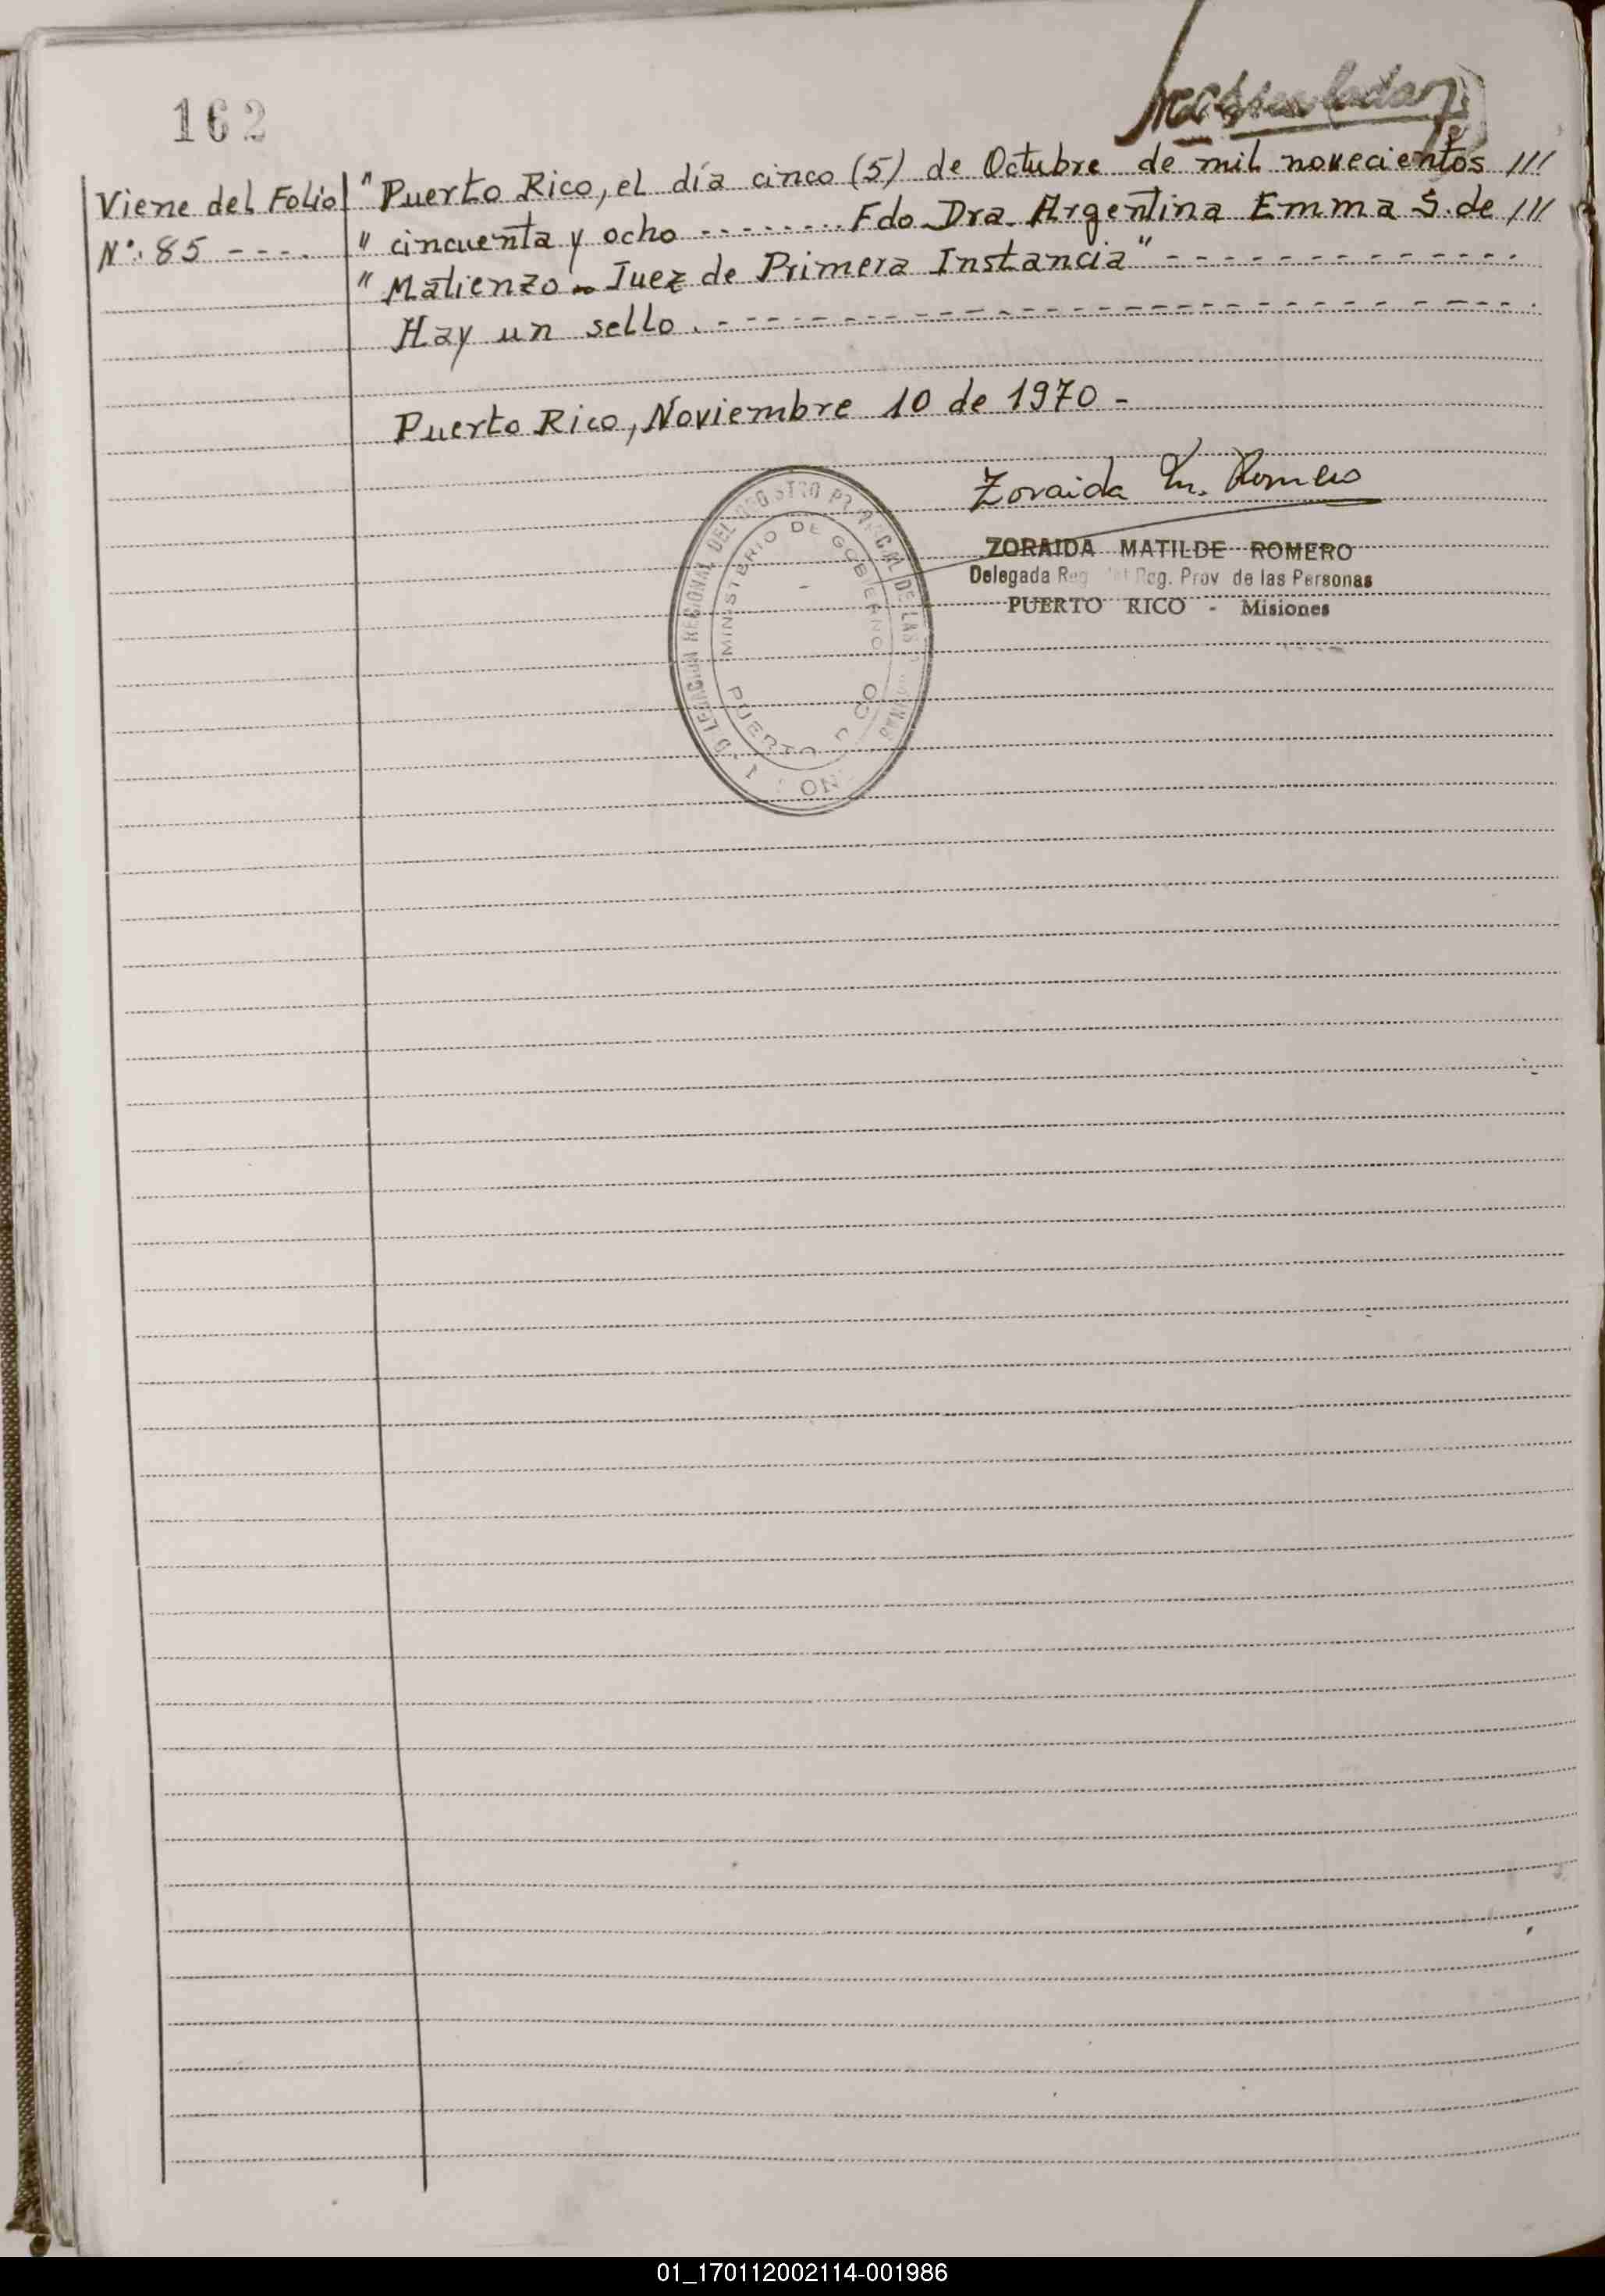 162
Viene del Folio
Nº: 85 ----
"Puerto Rico, el día cinco (5) de Octubre de mil novecientos ///
" cincuenta y ocho --------- Fdo Dra. Argentina Emma S. de ///
" Matienzo - Juez de Primera Instancia" -------------
Hay un sello. -----------------------------
Puerto Rico, Noviembre 10 de 1970 -
Zoraida M. Romero
ZORAIDA MATILDE ROMERO
Delegada Reg. Reg. Prov de las Personas
PUERTO RICO - Misiones
DELEGACION REGIONAL DEL REGISTRO PROVINCIAL DE LAS PERSONAS
MINISTERIO DE GOBIERNO
PUERTO RICO
01_170112002114-001986